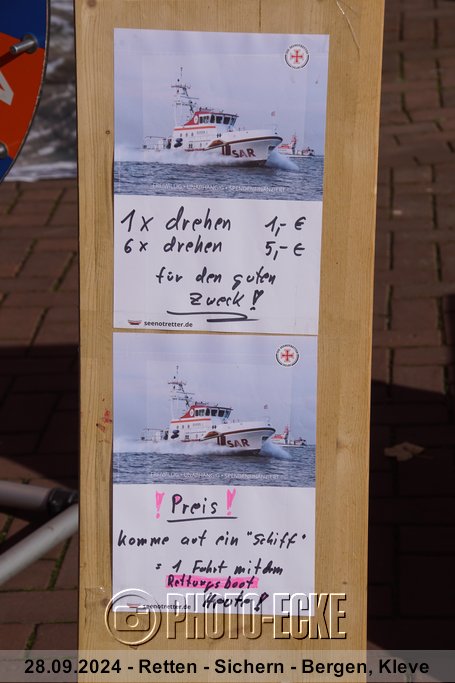 SAR
FREIWILLIG • UNABHÄNGIG • SPENDENFINANZIERT
1x drehen 1,- €
6x drehen 5,- €
für den guten
Zweck!
seenotretter.de
SAR
FREIWILLIG • UNABHÄNGIG • SPENDENFINANZIERT
! Preis!
komme auf ein "Schiff"
= 1 Fahrt mit dem
Rettungsboot
Heute!
seenotretter.de
PHOTO-ECKE
28.09.2024 - Retten - Sichern - Bergen, Kleve